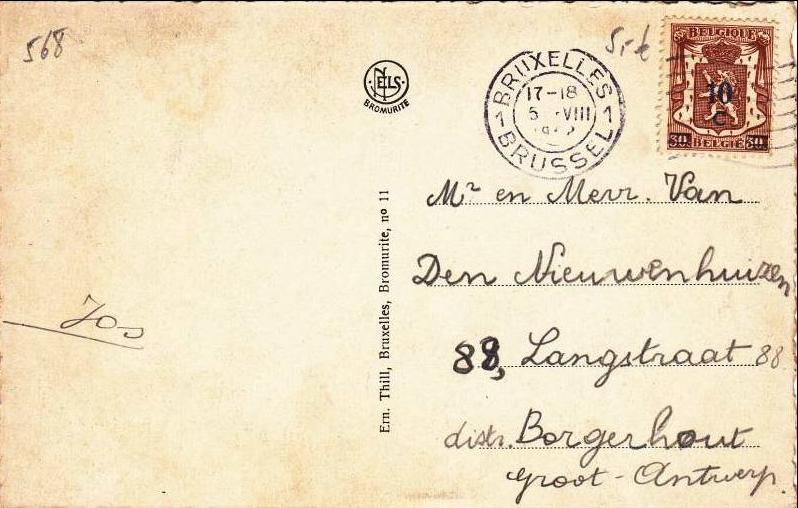 568
NELS
BROMURITE
BRUXELLES
17-18
5 -VIII
1 1
BRUSSEL
BELGIQUE
10
C
30 BELGIE 30
Ern. Thill, Bruxelles, Bromurite, nº 11
Mr en Mevr. Van
Den Nieuwenhuizen
88, Langstraat 88
distr. Borgerhout
Groot-Antwerp.
Jos